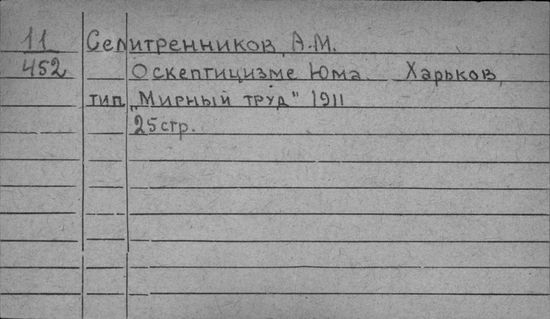 11 Селитренников, А.М.
452 О скептицизме Юма. Харьков,
тип. „Мирный труд" 1911
25стр.